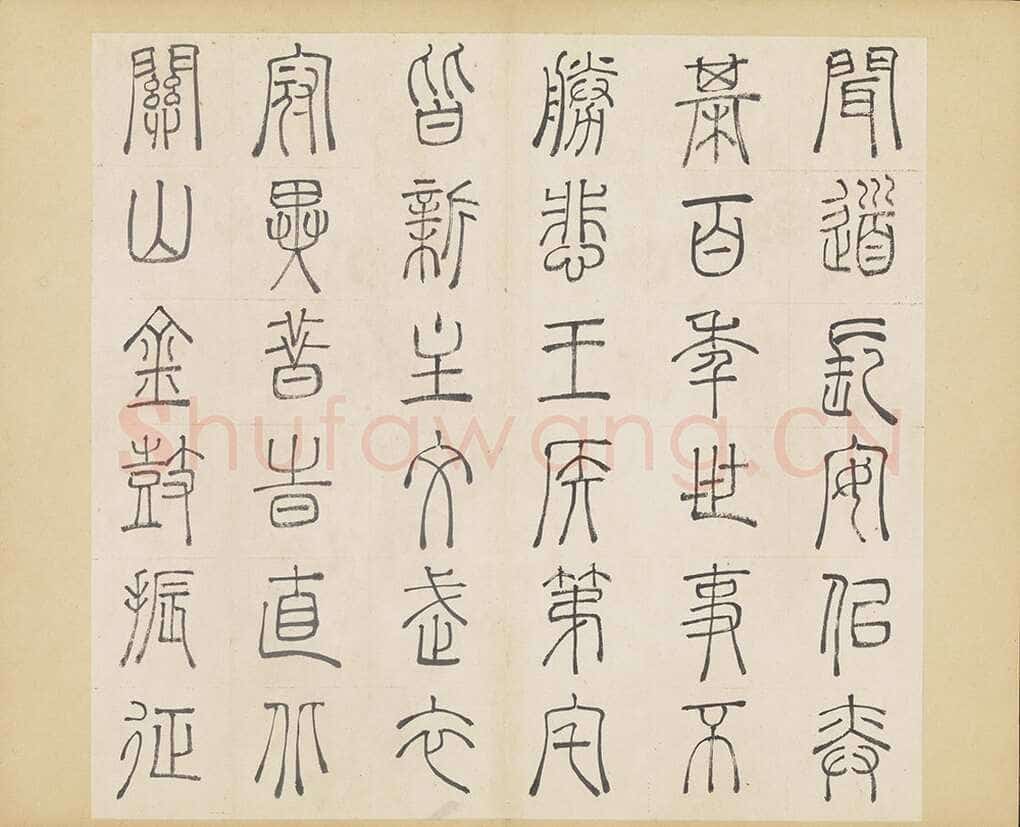 聞道長安佀弈
棊百年世事不
勝悲王矦第宅
皆新主文武衣
冠異昔旹直北
關山金鼓振征
Shufawang.CN